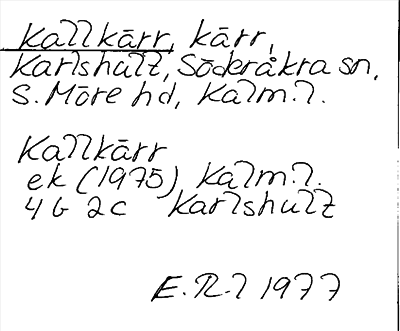 Kallkärr, kärr,
Karlshult, Söderåkra sn,
S. Möre hd, Kalm. l.
Kallkärr
ek (1975) Kalm. l.
4G 2c Karlshult
E. R-l 1977